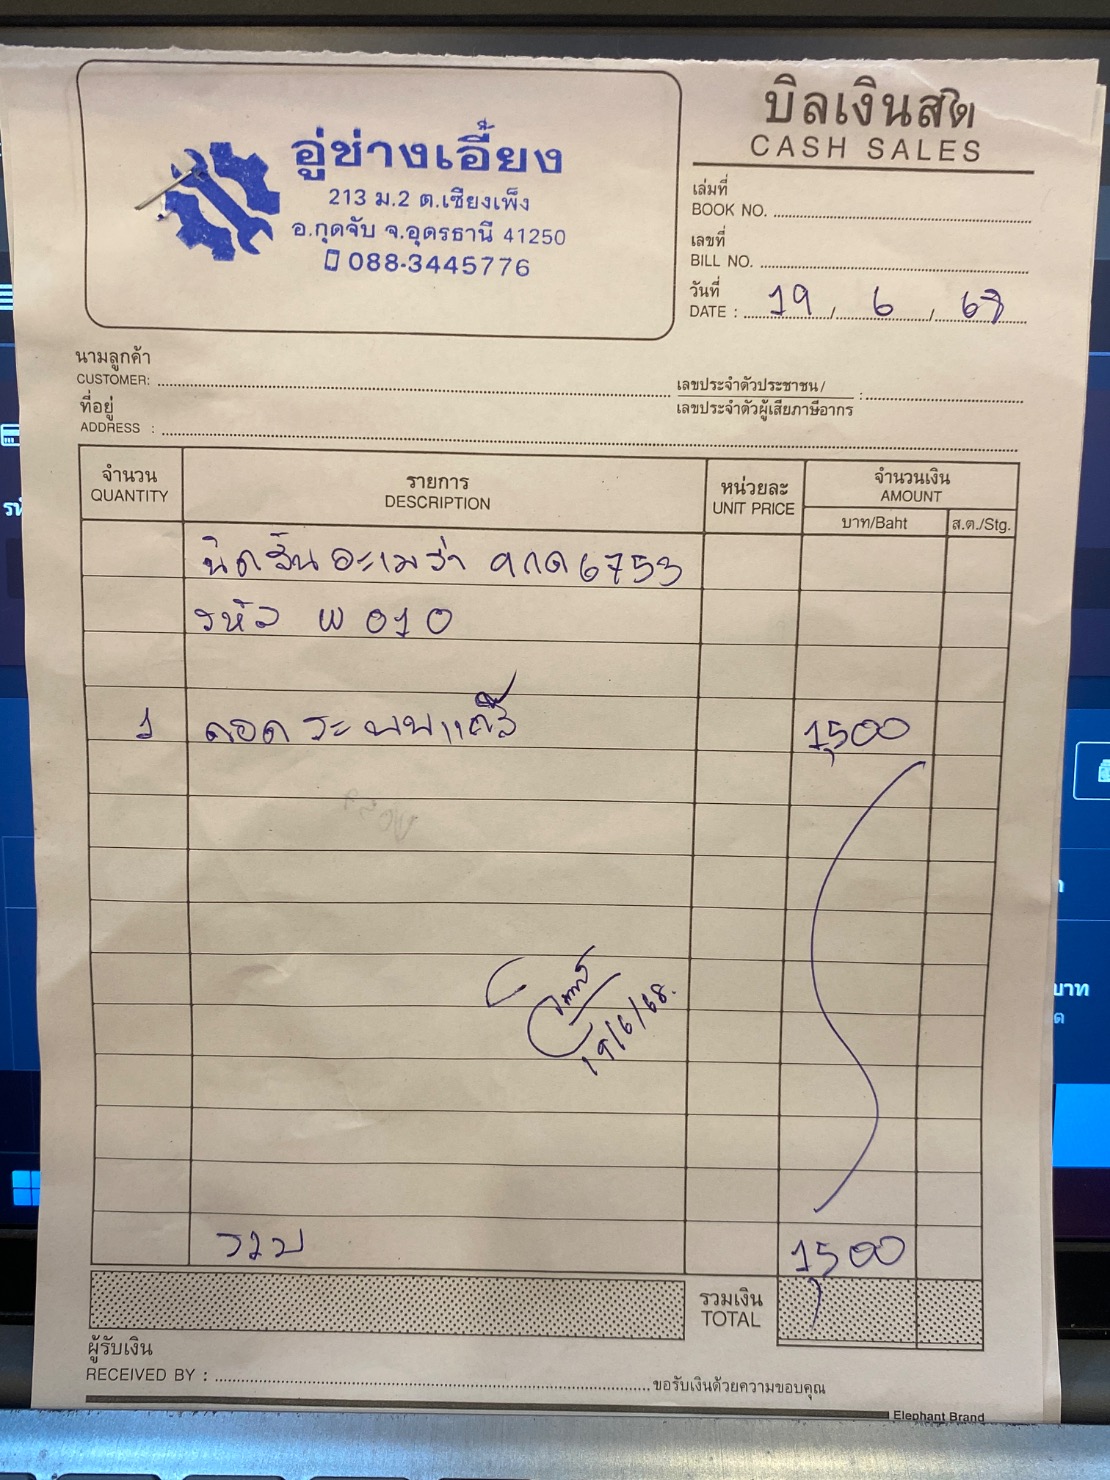 บิลเงินสด
CASH SALES
อู่ช่างเอี้ยง
213 ม.2 ต.เชียงเพ็ง
อ.กุดจับ จ.อุดรธานี 41250
088-3445776
เล่มที่
BOOK NO.
เลขที่
BILL NO.
วันที่
DATE : 19 / 6 / 68
นามลูกค้า
CUSTOMER:
เลขประจำตัวประชาชน/
เลขประจำตัวผู้เสียภาษีอากร :
ที่อยู่
ADDRESS :
จำนวน รายการ หน่วยละ จำนวนเงิน
QUANTITY DESCRIPTION UNIT PRICE AMOUNT
บาท/Baht ส.ต./Stg.
6753
รหัส W 010
1 1,500
19/6/68.
รวม 1,500
รวมเงิน
TOTAL
ผู้รับเงิน
RECEIVED BY : ขอรับเงินด้วยความขอบคุณ
Elephant Brand
บาท